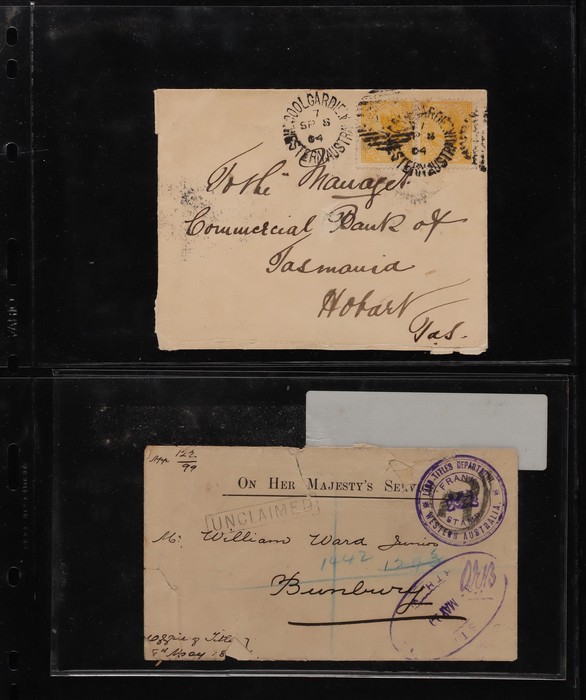 COOLGARDIE
7
SP 8
04
WESTERN AUSTRALIA
7
SP 8
04
WESTERN AUSTRALIA
To the Manager
Commercial Bank of
Tasmania
Hobart
Tas.
App 122/99
ON HER MAJESTY'S
LAND TITLES DEPARTMENT
FRANK
STAMP
WESTERN AUSTRALIA
UNCLAIMED
Mr William Ward Junior
1442
Bunbury
MAY
Office of Titles
8th May
VARIO